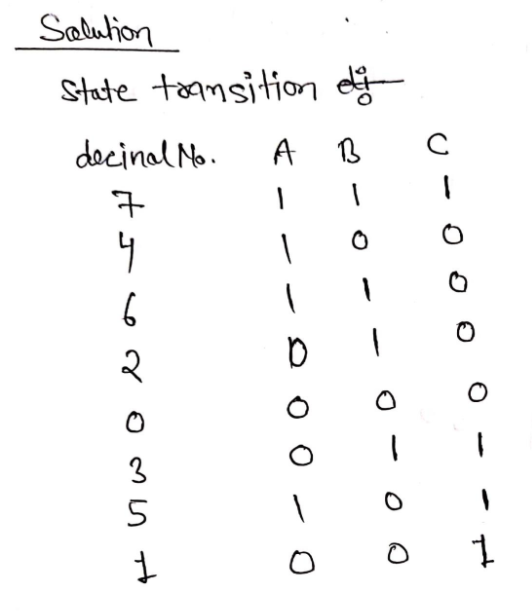 Solution
State transition
decinal No. A B C
7 1 1 1
4 1 0 0
6 1 1 0
2 0 1 0
0 0 0 0
3 0 1 1
5 1 0 1
1 0 0 1